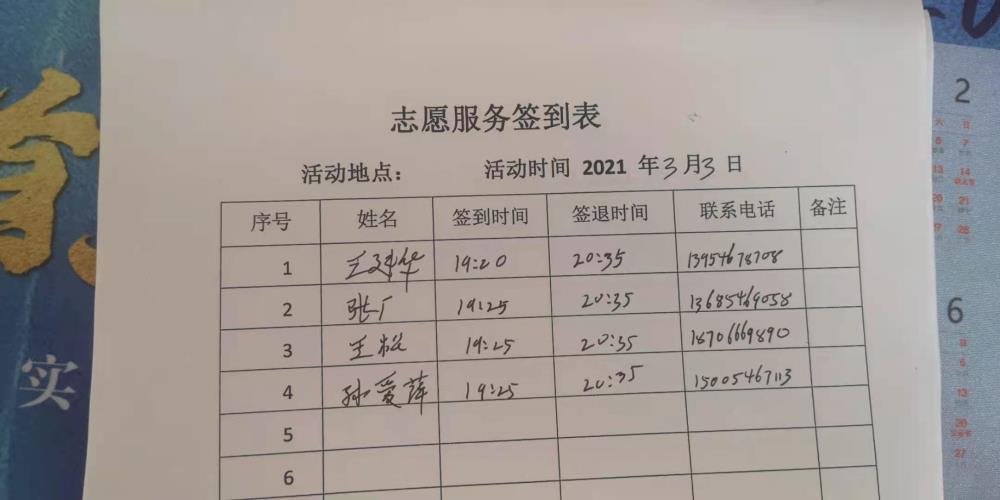 志愿服务签到表
活动地点： 活动时间 2021 年3月3日
序号 姓名 签到时间 签退时间 联系电话 备注
1 王建华 19:20 20:35 13954678708
2 张广 19:25 20:35 13685469058
3 王松 19:25 20:35 18706669890
4 孙爱萍 19:25 20:35 15005467113
5
6
实
2
6 7
13 14
20 21
27 28
6
6
13
20
27